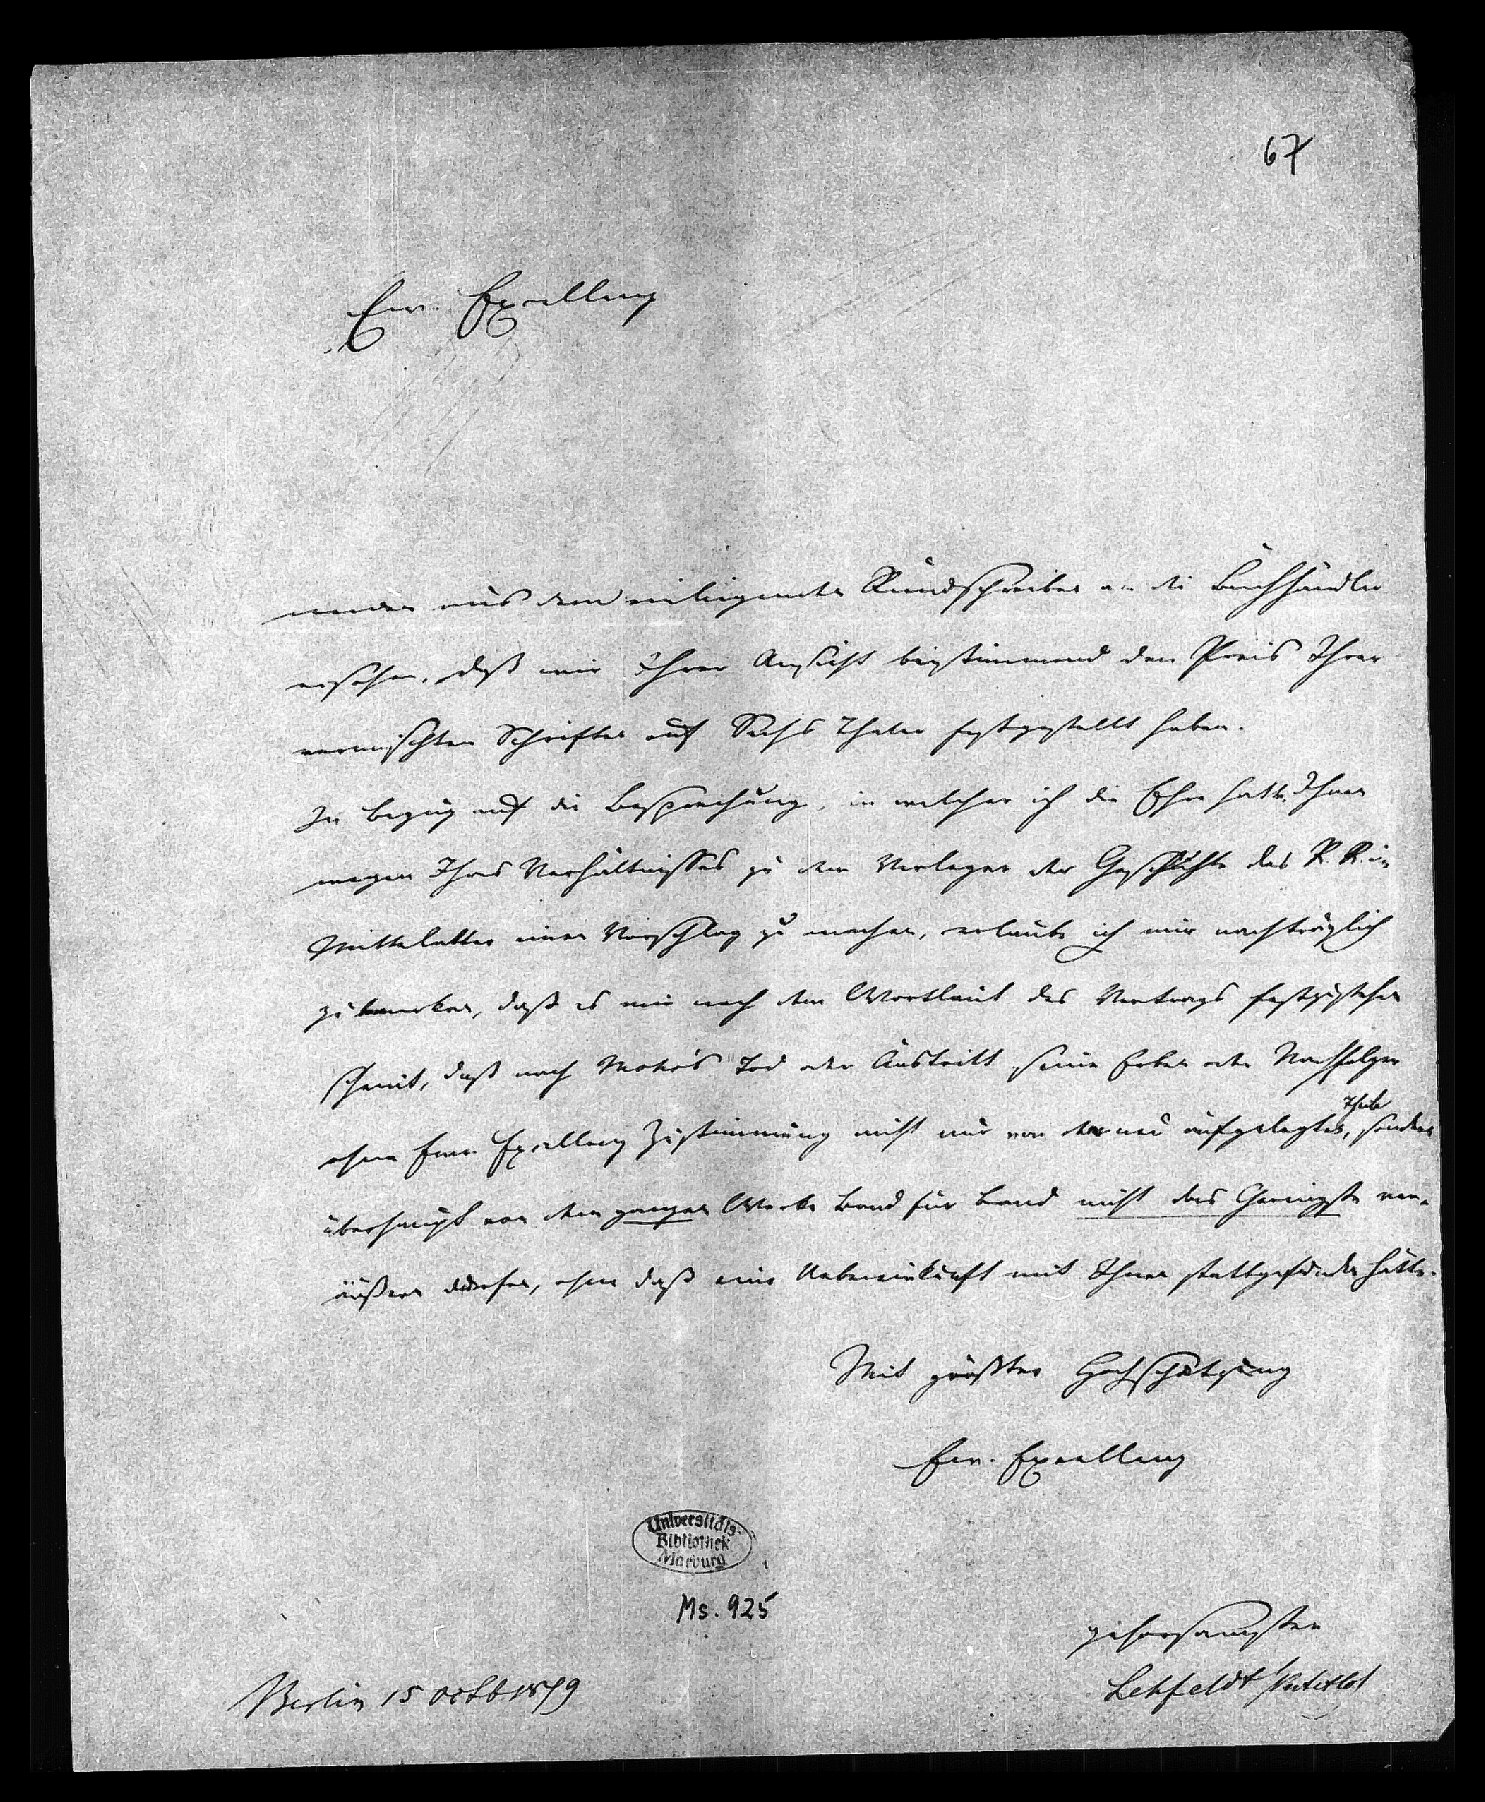 67
Ew. Excellenz
werden aus dem einliegenden Rundschreiben an die Buchhändler
ersehen, daß wir Ihrer Ansicht beistimmend den Preis Ihrer
vermischten Schriften auf Sechs Thaler festgestellt haben.
In Bezug auf die Besprechung, in welcher ich die Ehre hatte Ihnen
wegen Ihres Verhältnisses zu dem Verleger der Geschichte des R. R. im
Mittelalter einen Vorschlag zu machen, erlaube ich mir nachträglich
zu bemerken, daß es mir nach dem Wortlaut des Vertrags festzustehen
scheint, daß nach Mohr's Tod oder Austritt seine Erben oder Nachfolger
ohne Ew. Excellenz Zustimmung nicht nur von den neu aufgelegten Theilen, sondern
überhaupt von dem ganzen Werke Band für Band nicht das Geringste ver-
äußern dürfen, ohne daß eine Uebereinkunft mit Ihnen stattgefunden hätte.
Mit größter Hochschätzung
Ew. Excellenz
Universitäts-
Bibliothek
Marburg
Ms. 925
gehorsamster
Lehfeldt
Berlin 15 Octb 1849